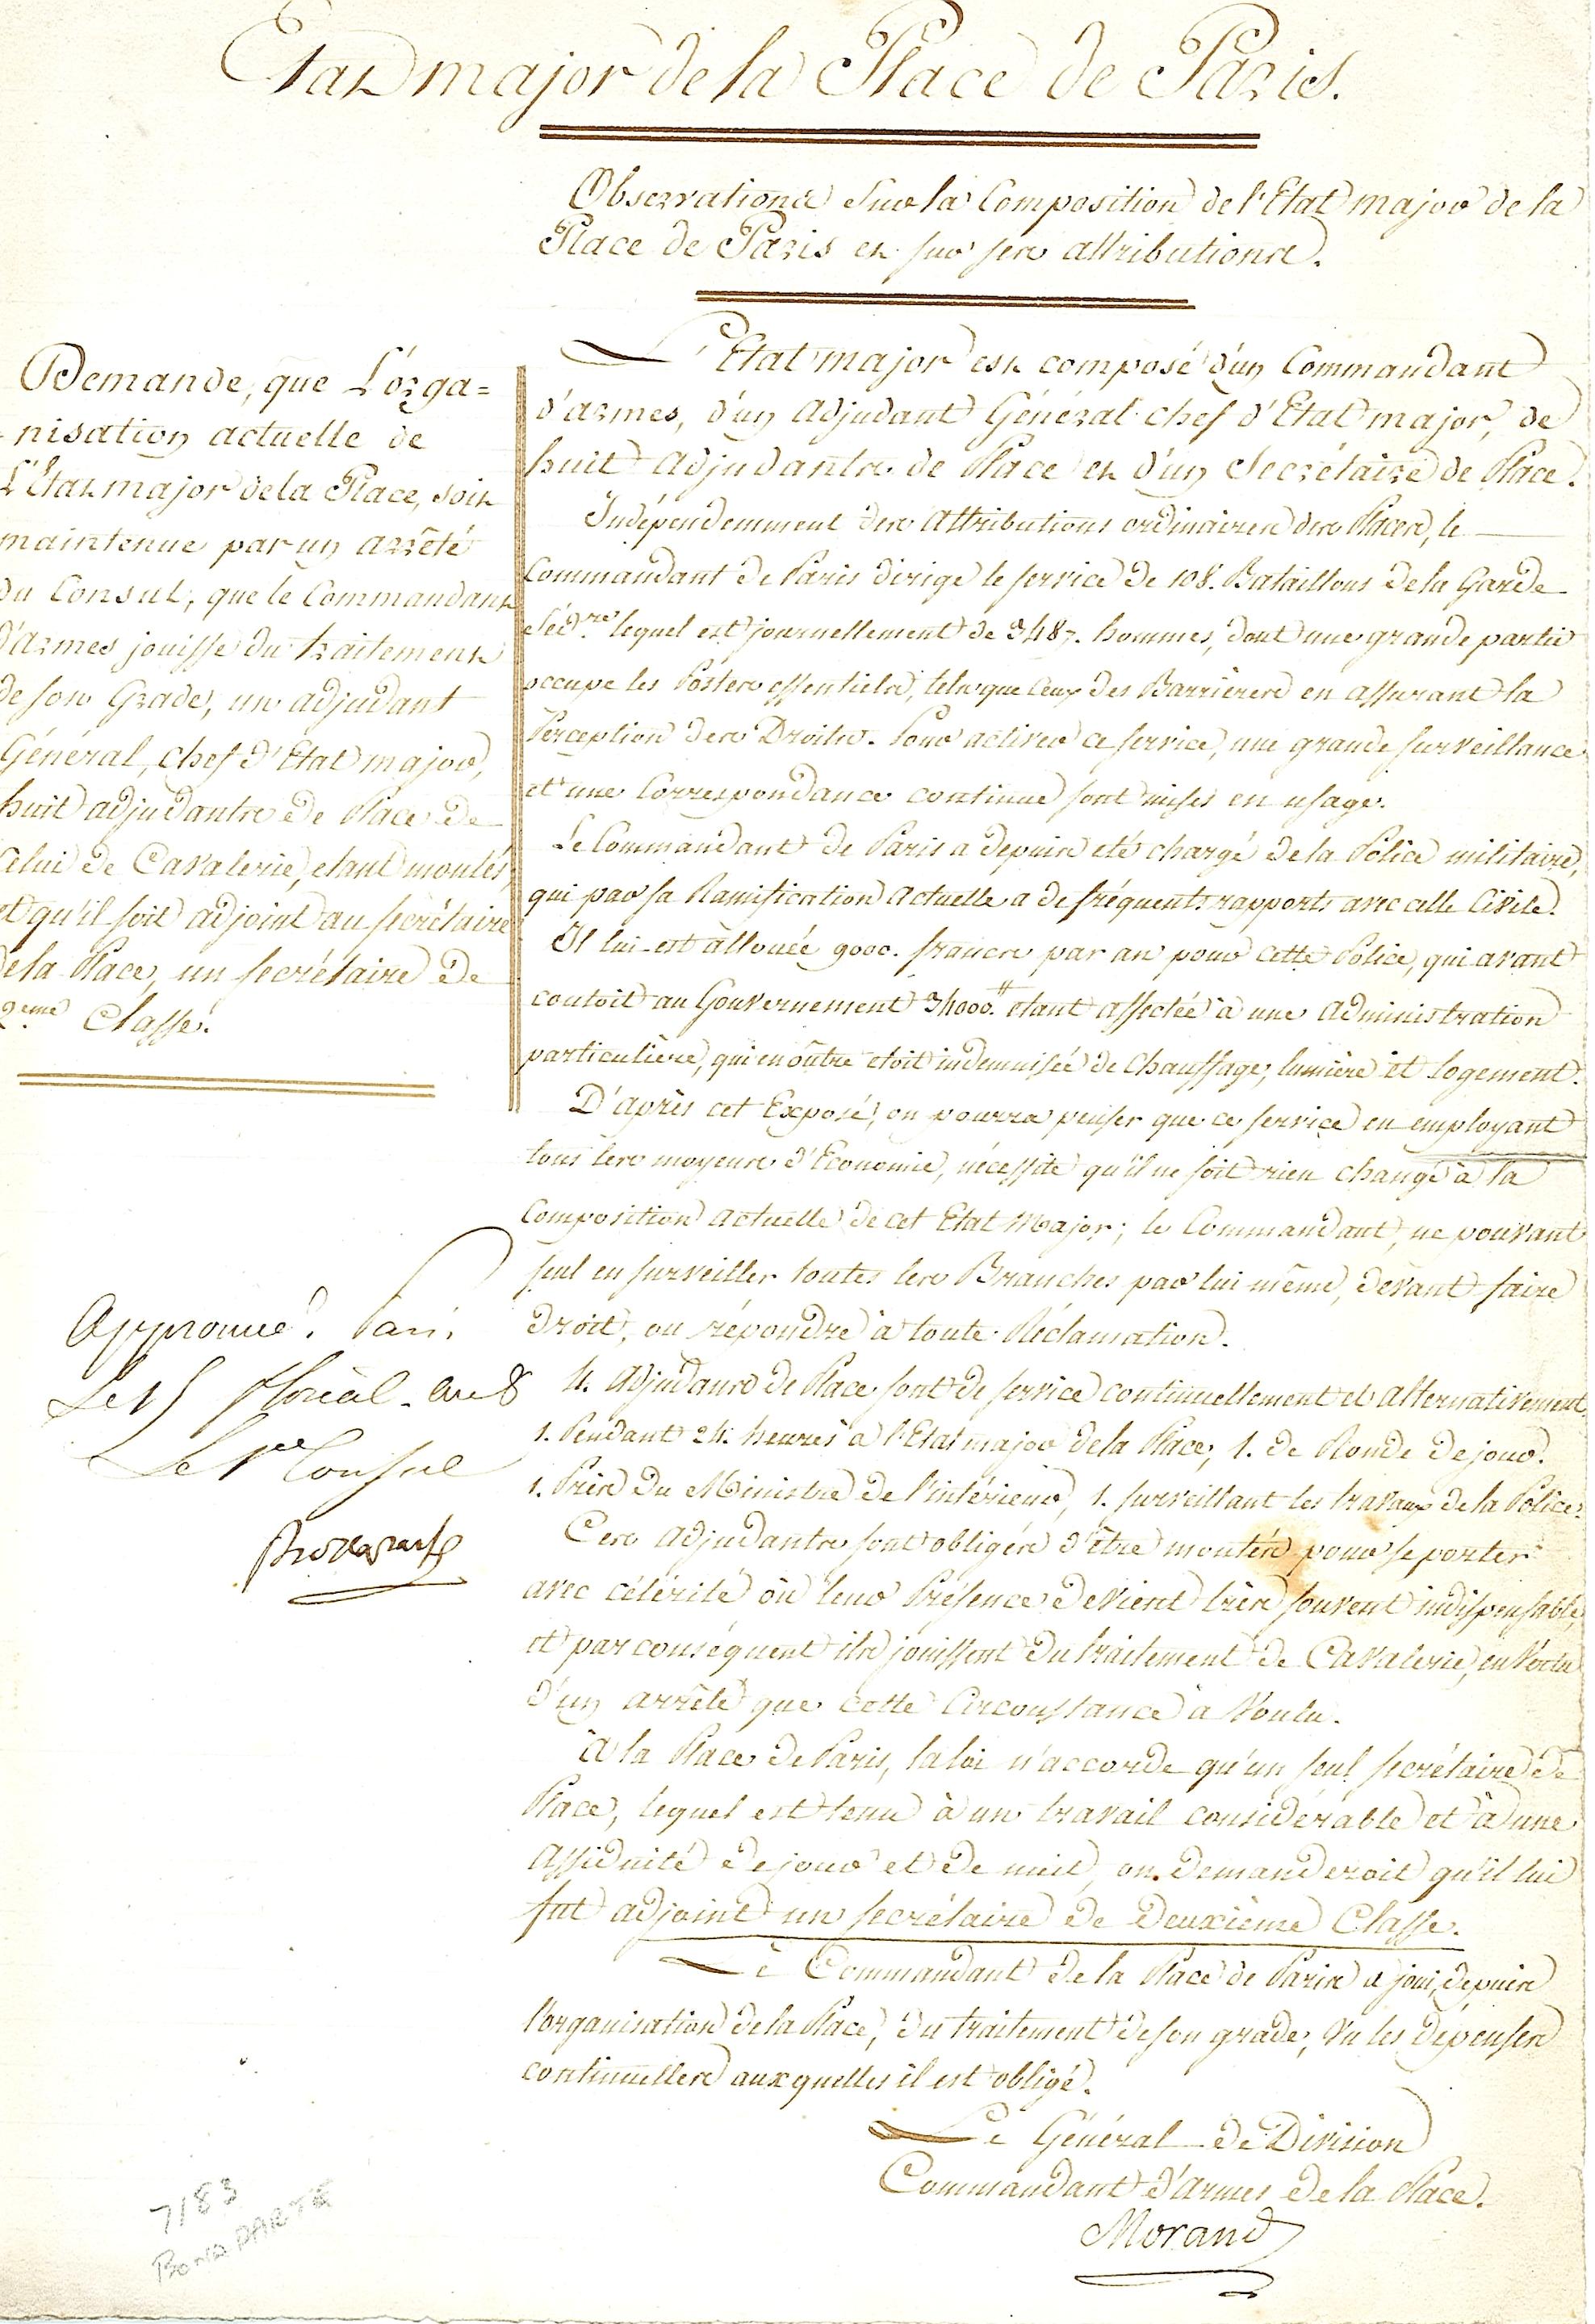 Etat major de la Place de Paris.
Observations sur la Composition de l'Etat major de la
Place de Paris et sur ses attributions.
Demande, que L'orga=
-nisation actuelle de
L'Etat major de la Place, soit
maintenue par un arrêté
du Consul, que le Commandant
d'armes jouisse du traitement
de son Grade, un adjudant
Général, chef d'Etat major,
huit adjudants de Place de
celui de Cavalerie, etant montés,
et qu'il soit adjoint au secrétaire
de la Place, un secrétaire de
2eme Classe.
Approuvé. Paris
Le 15 floréal. an 8
Le 1er Consul
Bonaparte
L'Etat major est composé d'un Commandant
d'armes, d'un adjudant Général chef d'Etat major, de
huit adjudants de Place et d'un Secrétaire de Place.
Indépendemment des attributions ordinaires des Places, le
Commandant de Paris dirige le service de 108. Bataillons de la Garde
Séd.re lequel est journellement de 3487. hommes, dont une grande partie
occupe les Postes essentiels, tels que ceux des Barrières en assurant la
Perception des Droits. Pour activer ce service, une grande surveillance
et une Correspondance continue sont mises en usage.
Le Commandant de Paris a depuis été chargé de la Police militaire,
qui par sa Ramification actuelle a de fréquents rapports avec celle Civile.
Il lui est allouée 9000. francs par an pour cette Police, qui avant
coutoit au Gouvernement 34000.tt etant affectée à une administration
particulière, qui en outre etoit indemnisée de Chauffage, lumière et logement.
D'après cet Exposé, on pourra penser que ce service en employant
tous les moyens d'Economie, nécessite qu'il ne soit rien changé à la
Composition actuelle de cet Etat Major; le Commandant, ne pouvant
seul en surveiller toutes les Branches par lui même, devant faire
droit, ou répondre à toute Réclamation.
4. Adjudants de Place sont de service continuellement et alternativement
1. Pendant 24. heures à l'Etat major de la Place, 1. de Ronde de jour.
1. Près du Ministre de l'intérieur, 1. surveillant les travaux de la Police.
Ces adjudants sont obligés d'être montés pour se porter
avec célérité où leur Présence devient très souvent indispensable,
et par conséquent ils jouissent du traitement de Cavalerie, en Vertu
d'un arrêté que cette Circonstance à Voulu.
à la Place de Paris, la loi n'accorde qu'un seul secrétaire de
Place, lequel est tenu à un travail considérable et à une
assiduité de jour et de nuit, on demanderoit qu'il lui
fut adjoint un secrétaire de Deuxième Classe.
Le Commandant de la Place de Paris a joui, depuis
l'organisation de la Place, du traitement de son grade, Vu les dépenses
continuelles auxquelles il est obligé.
Le Général de Division
Commandant d'armes de la Place.
Morand
7183
BONAPARTE